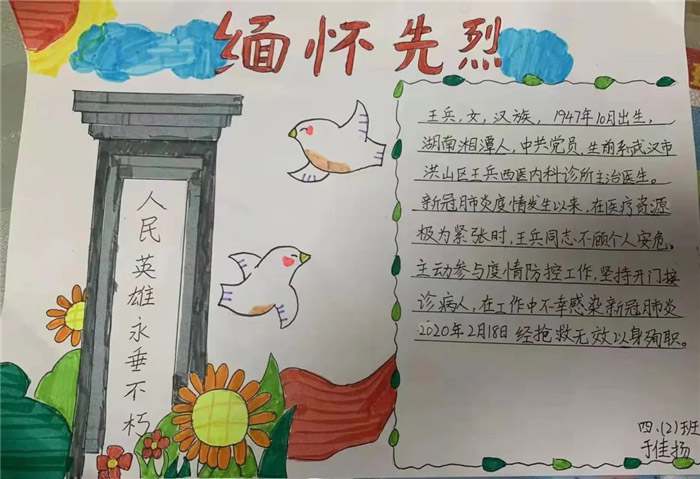 缅怀先烈
人民英雄永垂不朽
王兵，女，汉族，1947年10月出生，
湖南湘潭人，中共党员，生前系武汉市
洪山区王兵西医内科诊所主治医生。
新冠肺炎疫情发生以来，在医疗资源
极为紧张时，王兵同志不顾个人安危。
主动参与疫情防控工作，坚持开门接
诊病人，在工作中不幸感染新冠肺炎
2020年2月18日经抢救无效以身殉职。
四.(2)班
于佳扬